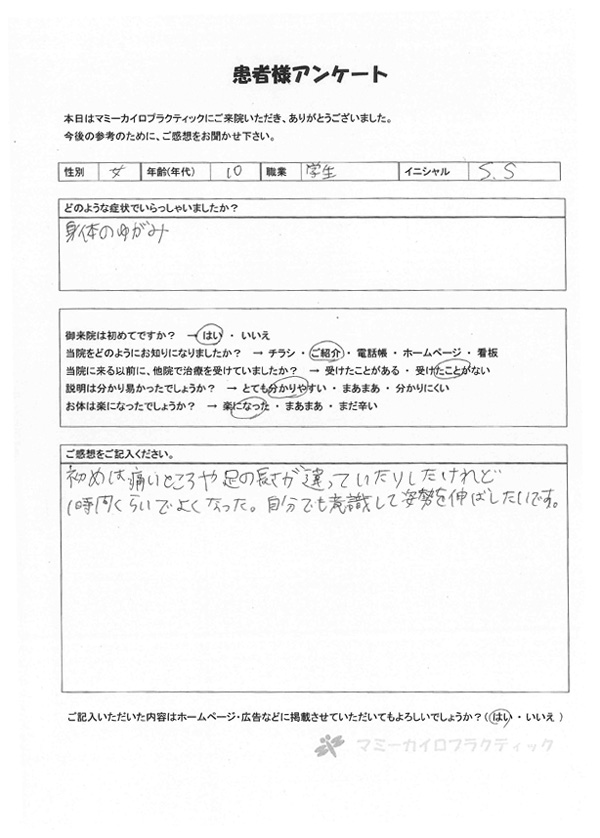 患者様アンケート
本日はマミーカイロプラクティックにご来院いただき、ありがとうございました。
今後の参考のために、ご感想をお聞かせ下さい。
性別 女 年齢(年代) 10 職業 学生 イニシャル S.S
どのような症状でいらっしゃいましたか？
身体のゆがみ
御来院は初めてですか？ → はい ・ いいえ
当院をどのようにお知りになりましたか？ → チラシ ・ ご紹介 ・ 電話帳 ・ ホームページ ・ 看板
当院に来る以前に、他院で治療を受けていましたか？ → 受けたことがある ・ 受けたことがない
説明は分かり易かったでしょうか？ → とても分かりやすい ・ まあまあ ・ 分かりにくい
お体は楽になったでしょうか？ → 楽になった ・ まあまあ ・ まだ辛い
ご感想をご記入ください。
初めは痛いところや足の長さが違っていたりしたけれど
1時間くらいでよくなった。自分でも意識して姿勢を伸ばしたいです。
ご記入いただいた内容はホームページ・広告などに掲載させていただいてもよろしいでしょうか？（はい ・ いいえ ）
マミーカイロプラクティック